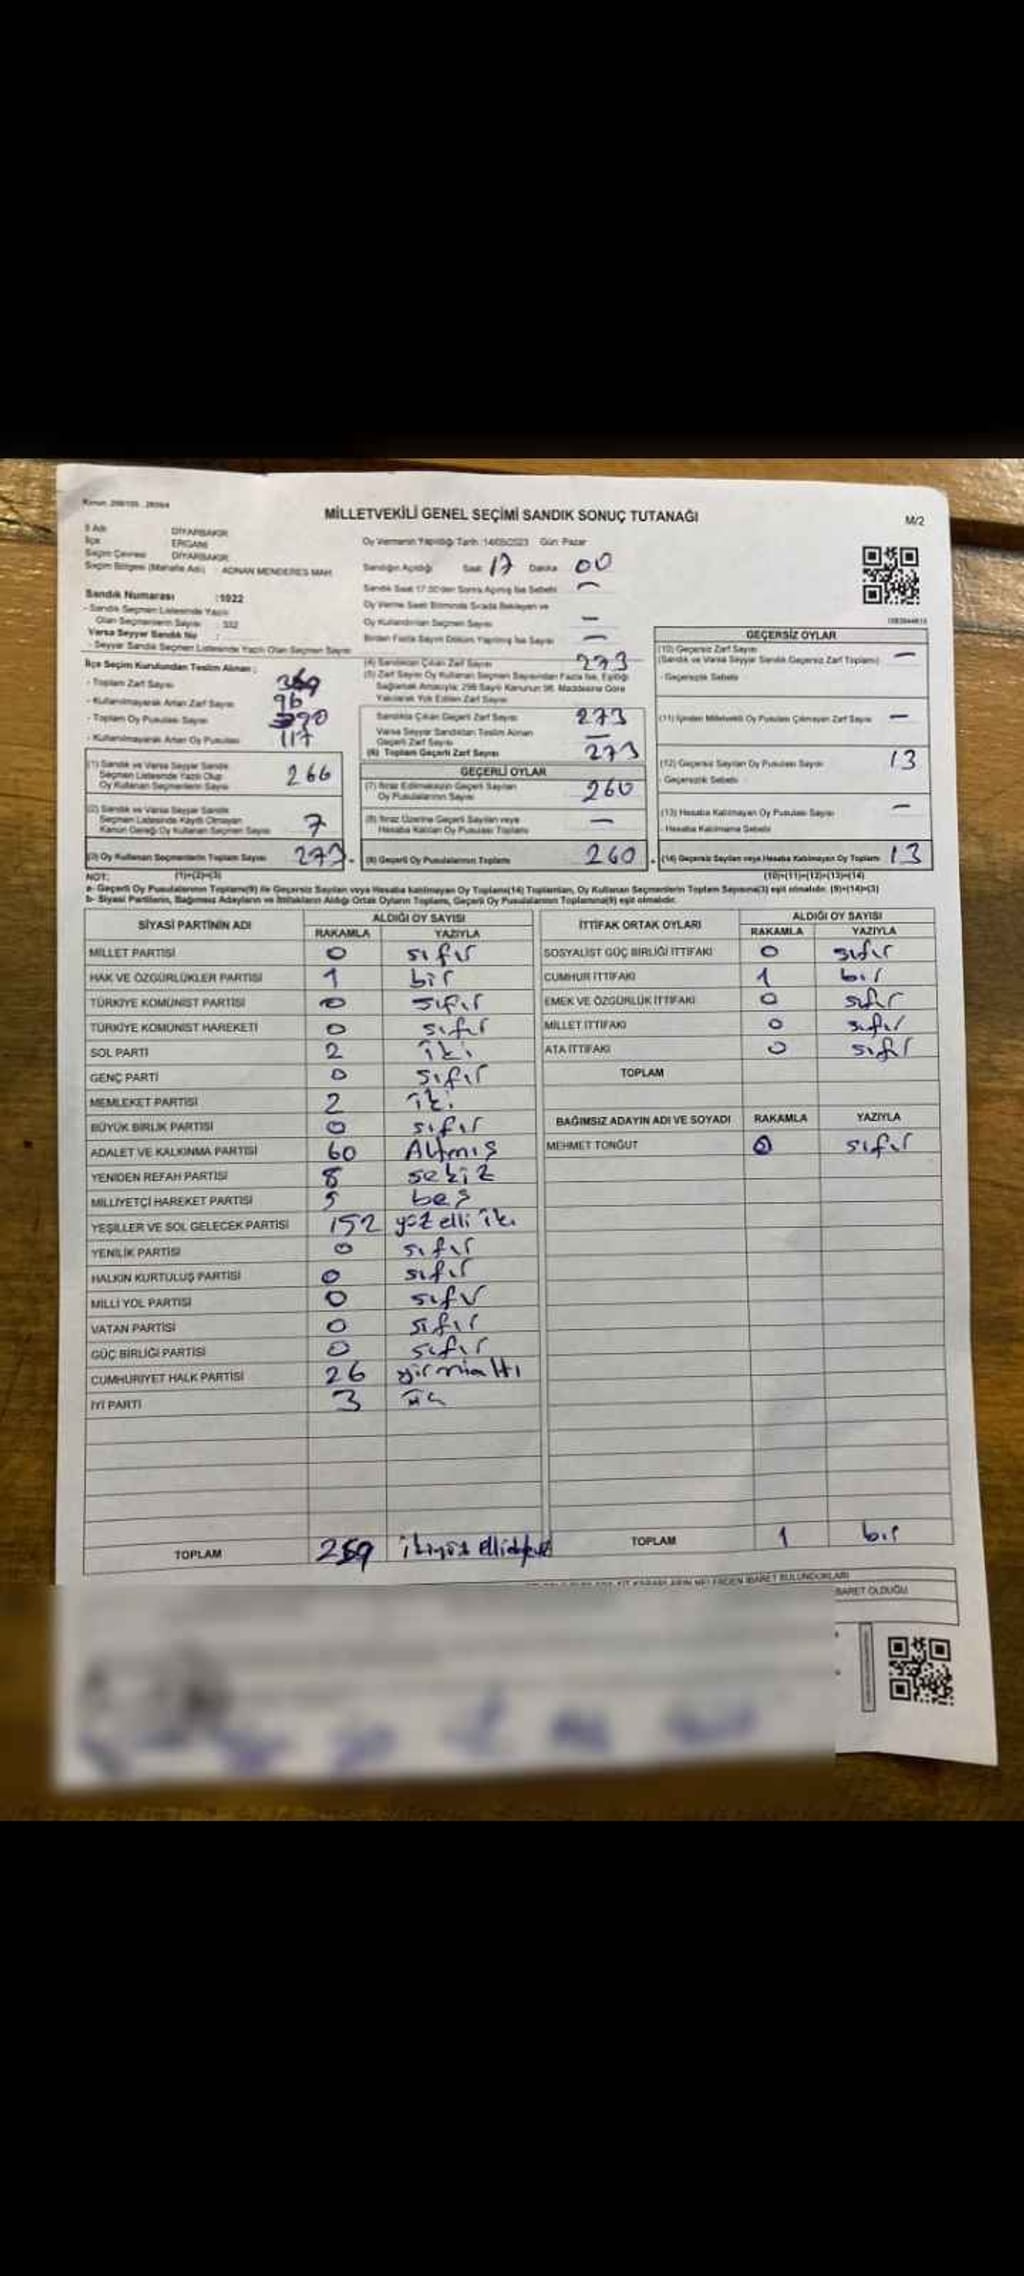 MİLLETVEKİLİ GENEL SEÇİMİ SANDIK SONUÇ TUTANAĞI
M/2
İl Adı DİYARBAKIR
İlçe ERGANİ
Seçim Çevresi DİYARBAKIR
Seçim Bölgesi (Mahalle Adı) ADNAN MENDERES MAH.
Oy Vermenin Yapıldığı Tarih :14/05/2023 Gün: Pazar
Sandığın Açıldığı Saat 17 Dakika 00
Sandık Saat 17.00'den Sonra Açılmış İse Sebebi —
Oy Verme Saati Bitiminde Sırada Bekleyen ve
Oy Kullandırılan Seçmen Sayısı —
Birden Fazla Sayım Döküm Yapılmış İse Sayısı —
Sandık Numarası :1022
- Sandık Seçmen Listesinde Yazılı
Olan Seçmenlerin Sayısı : 332
Varsa Seyyar Sandık No :
- Seyyar Sandık Seçmen Listesinde Yazılı Olan Seçmen Sayısı
İlçe Seçim Kurulundan Teslim Alınan :
- Toplam Zarf Sayısı 369
- Kullanılmayarak Artan Zarf Sayısı 96
- Toplam Oy Pusulası Sayısı 390
- Kullanılmayarak Artan Oy Pusulası 117
(1) Sandık ve Varsa Seyyar Sandık
Seçmen Listesinde Yazılı Olup
Oy Kullanan Seçmenlerin Sayısı 266
(2) Sandık ve Varsa Seyyar Sandık
Seçmen Listesinde Kayıtlı Olmayan
Kanun Gereği Oy Kullanan Seçmen Sayısı 7
(3) Oy Kullanan Seçmenlerin Toplam Sayısı 273
(1)+(2)=(3)
(4) Sandıktan Çıkan Zarf Sayısı 273
(5) Zarf Sayısı Oy Kullanan Seçmen Sayısından Fazla İse, Eşitliği
Sağlamak Amacıyla; 298 Sayılı Kanunun 98. Maddesine Göre
Yakılarak Yok Edilen Zarf Sayısı
Sandıkta Çıkan Geçerli Zarf Sayısı 273
Varsa Seyyar Sandıktan Teslim Alınan
Geçerli Zarf Sayısı —
(6) Toplam Geçerli Zarf Sayısı 273
GEÇERLİ OYLAR
(7) İtiraz Edilmeksizin Geçerli Sayılan
Oy Pusulalarının Sayısı 260
(8) İtiraz Üzerine Geçerli Sayılan veya
Hesaba Katılan Oy Pusulası Toplamı —
(9) Geçerli Oy Pusulalarının Toplamı 260
GEÇERSİZ OYLAR
(10) Geçersiz Zarf Sayısı —
(Sandık ve Varsa Seyyar Sandık Geçersiz Zarf Toplamı)
- Geçersizlik Sebebi
(11) İçinden Milletvekili Oy Pusulası Çıkmayan Zarf Sayısı —
(12) Geçersiz Sayılan Oy Pusulası Sayısı 13
- Geçersizlik Sebebi
(13) Hesaba Katılmayan Oy Pusulası Sayısı —
- Hesaba Katılmama Sebebi
(14) Geçersiz Sayılan veya Hesaba Katılmayan Oy Toplamı 13
(10)+(11)+(12)+(13)=(14)
NOT:
a- Geçerli Oy Pusulalarının Toplamı(9) ile Geçersiz Sayılan veya Hesaba katılmayan Oy Toplamı(14) Toplamları, Oy Kullanan Seçmenlerin Toplam Sayısına(3) eşit olmalıdır. (9)+(14)=(3)
b- Siyasi Partilerin, Bağımsız Adayların ve İttifakların Aldığı Ortak Oyların Toplamı, Geçerli Oy Pusulalarının Toplamına(9) eşit olmalıdır.
SİYASİ PARTİNİN ADI ALDIĞI OY SAYISI
RAKAMLA YAZIYLA
MİLLET PARTİSİ 0 sıfır
HAK VE ÖZGÜRLÜKLER PARTİSİ 1 bir
TÜRKİYE KOMÜNİST PARTİSİ 0 sıfır
TÜRKİYE KOMÜNİST HAREKETİ 0 sıfır
SOL PARTİ 2 iki
GENÇ PARTİ 0 sıfır
MEMLEKET PARTİSİ 2 iki
BÜYÜK BİRLİK PARTİSİ 0 sıfır
ADALET VE KALKINMA PARTİSİ 60 Altmış
YENİDEN REFAH PARTİSİ 8 sekiz
MİLLİYETÇİ HAREKET PARTİSİ 5 beş
YEŞİLLER VE SOL GELECEK PARTİSİ 152 yüz elli iki
YENİLİK PARTİSİ 0 sıfır
HALKIN KURTULUŞ PARTİSİ 0 sıfır
MİLLİ YOL PARTİSİ 0 sıfır
VATAN PARTİSİ 0 sıfır
GÜÇ BİRLİĞİ PARTİSİ 0 sıfır
CUMHURİYET HALK PARTİSİ 26 yirmialtı
İYİ PARTİ 3 üç
TOPLAM 259 ikiyüz ellidokuz
İTTİFAK ORTAK OYLARI ALDIĞI OY SAYISI
RAKAMLA YAZIYLA
SOSYALİST GÜÇ BİRLİĞİ İTTİFAKI 0 sıfır
CUMHUR İTTİFAKI 1 bir
EMEK VE ÖZGÜRLÜK İTTİFAKI 0 sıfır
MİLLET İTTİFAKI 0 sıfır
ATA İTTİFAKI 0 sıfır
TOPLAM
BAĞIMSIZ ADAYIN ADI VE SOYADI RAKAMLA YAZIYLA
MEHMET TONĞUT 0 sıfır
TOPLAM 1 bir